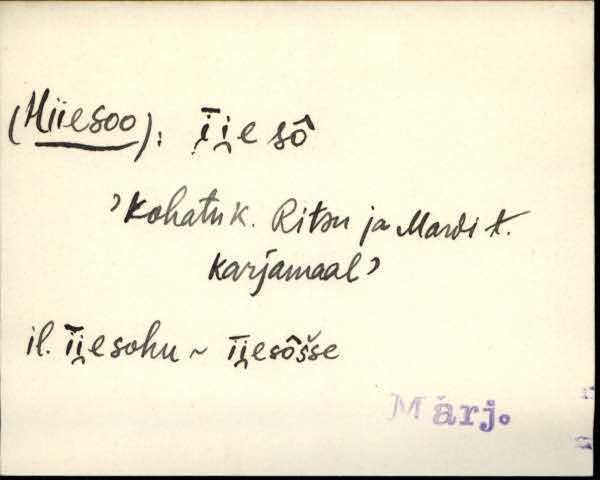 (Hiiesoo): īi̯e sô
'Kohatuk. Ritsu ja Mardi t.
karjamaal'
il. īi̯esohu ~ īi̯esôšse
Märj.